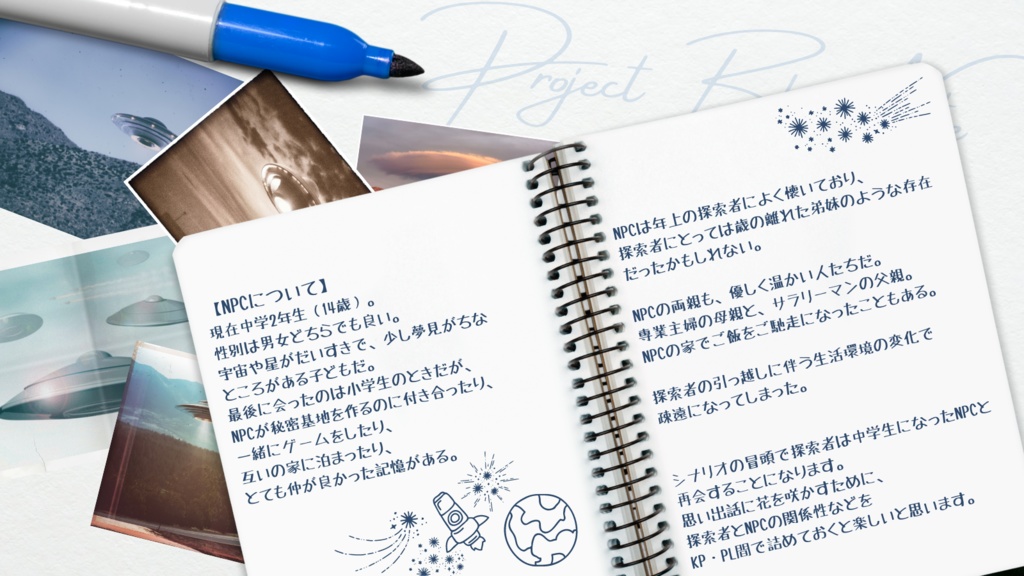 Project
【NPCについて】
現在中学2年生（14歳）。
性別は男女どちらでも良い。
宇宙や星がだいすきで、少し夢見がちな
ところがある子どもだ。
最後に会ったのは小学生のときだが、
NPCが秘密基地を作るのに付き合ったり、
一緒にゲームをしたり、
互いの家に泊まったり、
とても仲が良かった記憶がある。
NPCは年上の探索者によく懐いており、
探索者にとっては歳の離れた弟妹のような存在
だったかもしれない。
NPCの両親も、優しく温かい人たちだ。
専業主婦の母親と、サラリーマンの父親。
NPCの家でご飯をご馳走になったこともある。
探索者の引っ越しに伴う生活環境の変化で
疎遠になってしまった。
シナリオの冒頭で探索者は中学生になったNPCと
再会することになります。
思い出話に花を咲かすために、
探索者とNPCの関係性などを
KP・PL間で詰めておくと楽しいと思います。